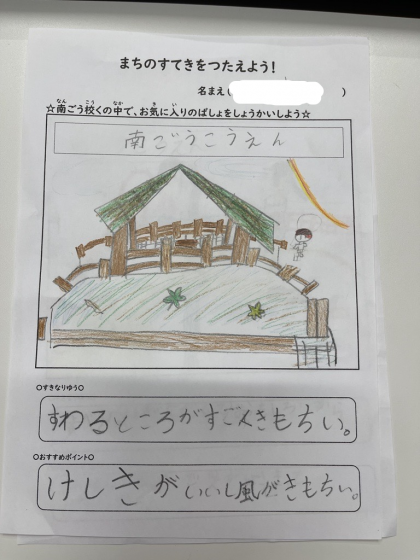 まちのすてきをつたえよう!
名まえ( )
☆南ごう校くの中で、お気に入りのばしょをしょうかいしよう☆
南ごうこうえん
○すきなりゆう○
すわるところがすごくきもちい。
○おすすめポイント○
けしきがいいし風がきもちい。